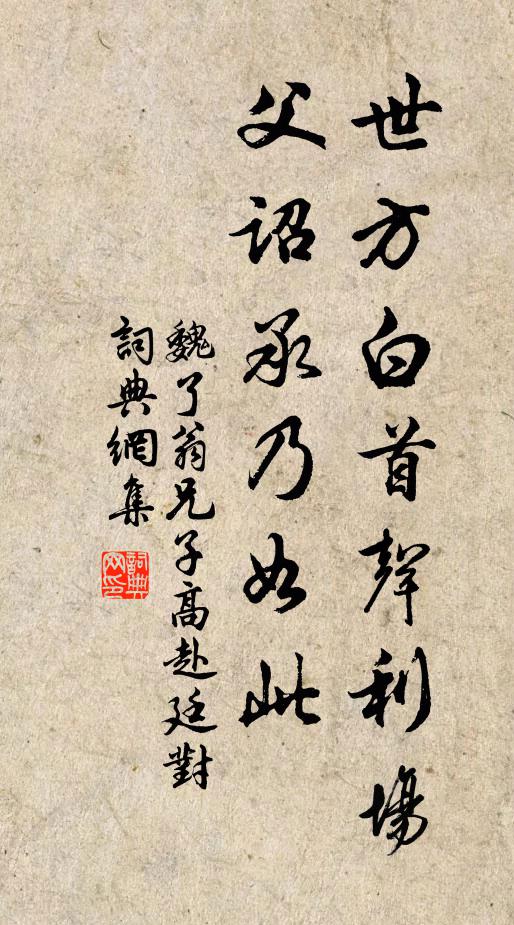 世方白首聲利場
父詔承乃如此
魏了翁兄子高赴廷對
詞典網集
詞典网印